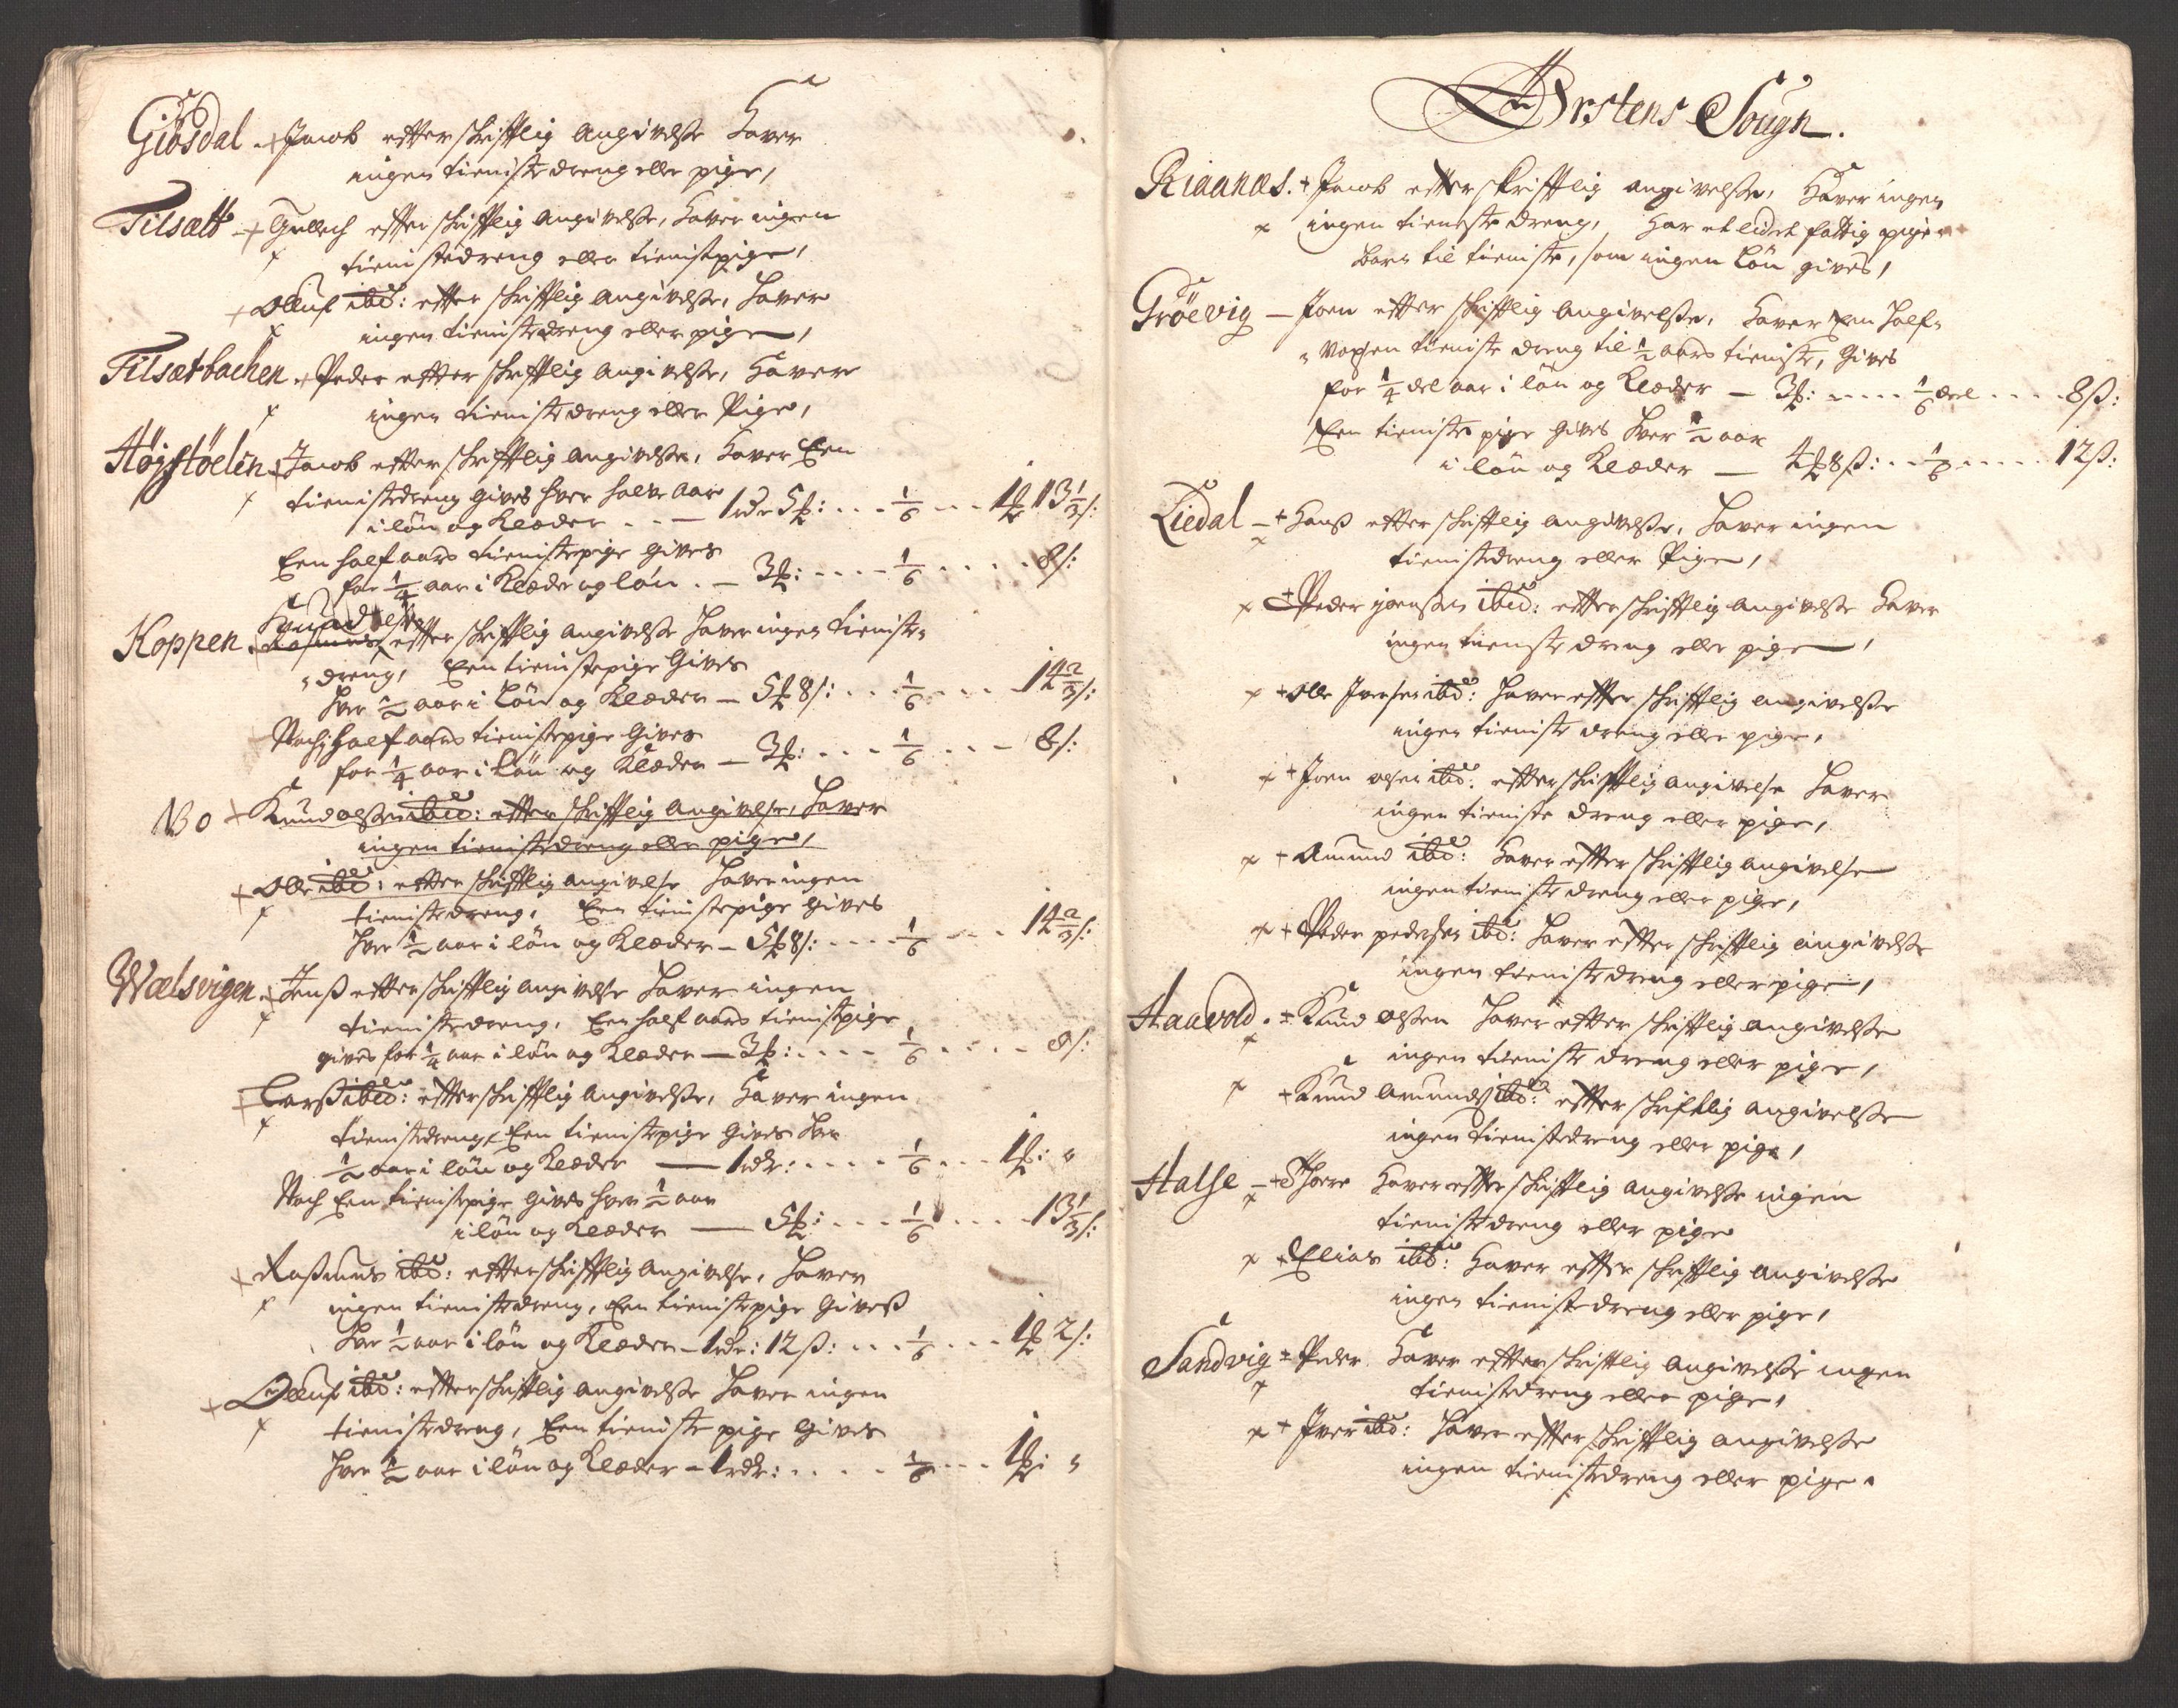 Giösdal - Jacob effter skrifftlig angivelse haver
ingen tieniste dreng eller pige,
Tilsætt - Gullich effter skrifftlig angivelse, haver ingen
tienistedreng eller tienistpige,
Olluf ibid: effter skrifftlig angivelse, haver
ingen tienistedreng eller pige,
Tilsætbachen - Peder effter skrifftlig angivelse, haver
ingen tienistedreng eller Pige,
Højstöelin - Jacob effter skrifftlig angivelse, haver Een
tienistedreng gives hver halve aar
i lön og Klæder - 1 rdr 5 ℔: - - - 1/6 - - 1 ℔ 13 1/3 s:
Een half aars tienistepige gives
for 1/4 aar i Klæder og lön - 3 ℔: - - - 1/6 - - - 8 s:
Knud olsen
Koppen - Rasmus effter skrifftlig angivelse haver ingen tieniste-
dreng, Een tienistepige Gives
hver 1/2 aar i Lön og Klæder - 5 ℔ 8 s: - - 1/6 - - - 14 2/3 s:
Noch half aars tienistepige Gives
for 1/4 aar i Lön og Klæder - 3 ℔: - - - 1/6 - - - 8 s:
NB 0 Knud olsen ibid: effter skrifftlig angivelse, haver
ingen tienistedreng eller pige,
Olle ibid: effter skrifftlig angivelse haver ingen
tienistedreng, Een tienistepige gives
hver 1/2 aar i lön og Klæder - 5 ℔ 8 s: - - - 1/6 - - - 14 2/3 s:
Wælsvigen - Jenß effter skrifftlig angivelse haver ingen
tienistedreng, Een half aars tienistpige
gives for 1/4 aar i lön og Klæder - 3 ℔: - - - 1/6 - - - 8 s:
Larß ibid: effter skrifftlig angivelse, haver ingen
tienistedreng, Een tienistepige Gives hver
1/2 aar i lön og Klæder - 1 rdr: - - - 1/6 - - 1 ℔: "
Noch Een tienistepige gives hver 1/2 aar
i lön og Klæder - 5 ℔: - - - 1/6 - - - 13 1/3 s:
Raßmus ibid: effter skrifftlig angivelse, haver
ingen tienistedreng, Een tienistepige Giveß
hver 1/2 aar i lön og Klæder - 1 rdr: 12 ß: - - - 1/6 - - 1 ℔ 2 s:
Olluf ibid: effter skrifftlig angivelse haver ingen
tienistedreng, Een tieniste pige Gives
hver 1/2 aar i lön og Klæder - 1 rdr: - - - 1/6 - - 1 ℔: "
Ørstens Sougn.
Riaanæs. - Jacob effter skrifftlig angivelse, haver ingen
ingen tieniste dreng, har et lidet fattig pige
barn til tieniste, som ingen lön gives,
Gröevig - Joen effter skrifftlig angivelse, haver Een half-
vopen tieniste dreng til 1/2 aars tieniste, Gives
for 1/4 del aar i lön og Klæder - 3 ℔: - - - 1/6 deel - - - 8 ß:
Een tieniste pige gives hver 1/2 aar
i lön og Klæder - 4 ℔ 8 ß: - - 1/6 - - - 12 ß:
Liedal - Hanß effter skrifftlig angivelse, haver ingen
tienistedreng eller Pige,
Peder joensen ibid: effter skrifftlig angivelse haver
ingen tieniste dreng eller pige,
Olle Iversen ibid: haver effter skrifftlig angivelse
ingen tieniste dreng eller pige,
Joen olsen ibid: effter skrifftlig angivelse haver
ingen tieniste dreng eller pige,
Amund ibid: haver effter skrifftlig angivelse
ingen tieniste dreng eller pige,
Peder pedersen ibid: haver effter skrifftlig angivelse
ingen tienistedreng eller pige,
Haavold. - Knud olsen haver effter skrifftlig angivelse
ingen tieniste dreng eller pige,
Knud Amunds ibid: effter skrifftlig angivelse
ingen tienistedreng eller pige,
Halse - Thore haver effter skrifftlig angivelse ingen
tienistedreng eller pige
Elias ibid: haver effter skrifftlig angivelse
ingen tienistedreng eller pige,
Sandvig - Peder haver effter skrifftlig angivelse ingen
tienistedreng eller pige,
Iver ibid: haver effter skrifftlig angivelse
ingen tienistedreng eller pige.